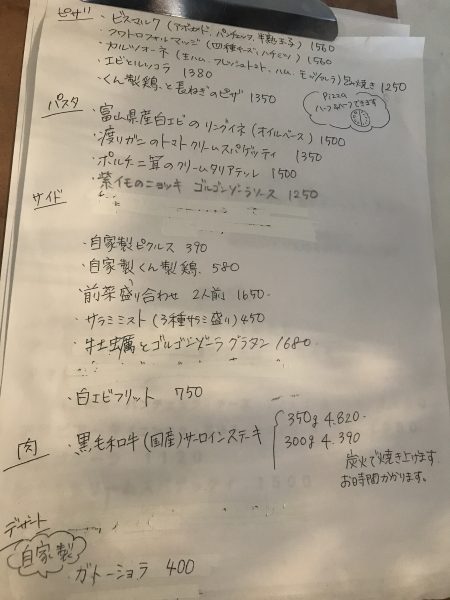 ピザ
・ビスマルク(アボカド、パンチェッタ、半熟玉子) 1560
・クワトロフォルマッジ(四種チーズ、ハチミツ) 1560
・カルツォーネ(生ハム、フレッシュトマト、ハム、モッツァレラ)包み焼き 1250
・エビとルッコラ 1380
・くん製鶏、と長ねぎのピザ 1350
Pizza
ハーフ&ハーフできます
パスタ
・富山県産白エビのリングイネ(オイルベース) 1500
・渡りガニのトマトクリームスパゲッティ 1350
・ポルチーニ茸のクリームタリアテッレ 1500
・紫イモのニョッキ ゴルゴンゾーラソース 1250
サイド
・自家製ピクルス 390
・自家製くん製鶏. 580
・前菜盛り合わせ 2人前 1650.
・サラミミスト(3種サラミ盛り) 450
・牡蠣とゴルゴンゾーラグラタン 1680.
・白エビフリット 750
肉
・黒毛和牛(国産)サーロインステーキ
350g 4.820.
300g 4.390
炭火で焼き上げます.
お時間かかります。
デザート
自家製
・ガトーショコラ 400